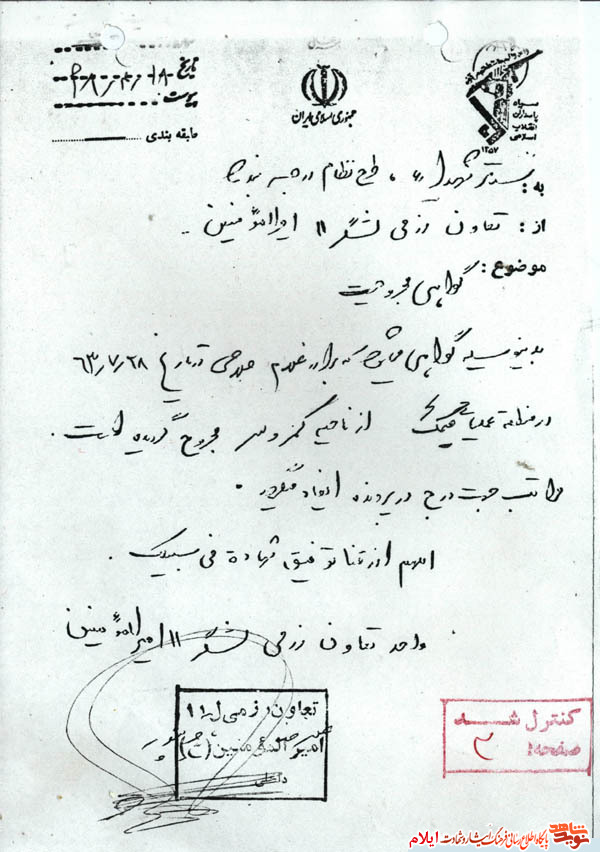 تاریخ
پیوست
طبقه بندی
جمهوری اسلامی ایران
سپاه
پاسداران
انقلاب
اسلامی
۱۳۵۷
به:
از: تعاون رزمی لشگر ۱۱ امیرالمؤمنین
موضوع: گواهی مجروحیت
بدینوسیله گواهی میشود که برادر غلام صلاحی در تاریخ ۶۳/۷/۲۸
در منطقه عملیاتی میمک از ناحیه کمر و سر مجروح گردیده است.
مراتب جهت درج در پرونده ایفاد میگردد.
اللهم ارزقنا توفیق شهادة فی سبیلک.
واحد تعاون رزمی لشگر ۱۱ امیرالمؤمنین
تعاون رزمی ل ۱۱
امیرالمؤمنین (ع)
داخلی
کنترل شد
صفحه: ۳
نوید شاهد
پایگاه اطلاع رسانی فرهنگ ایثار و شهادت ایلام